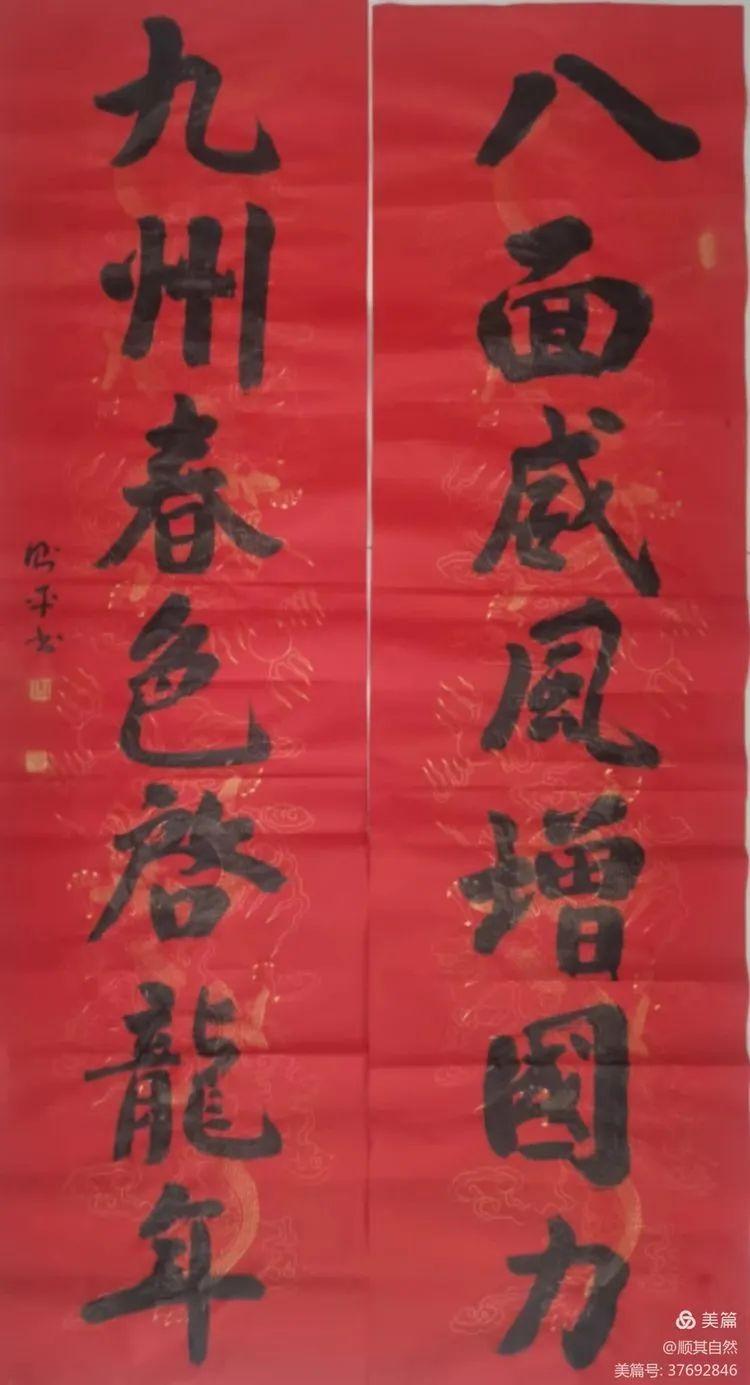 八面威風增國力
九州春色啓龍年
平书
美篇
@顺其自然
美篇号: 37692846